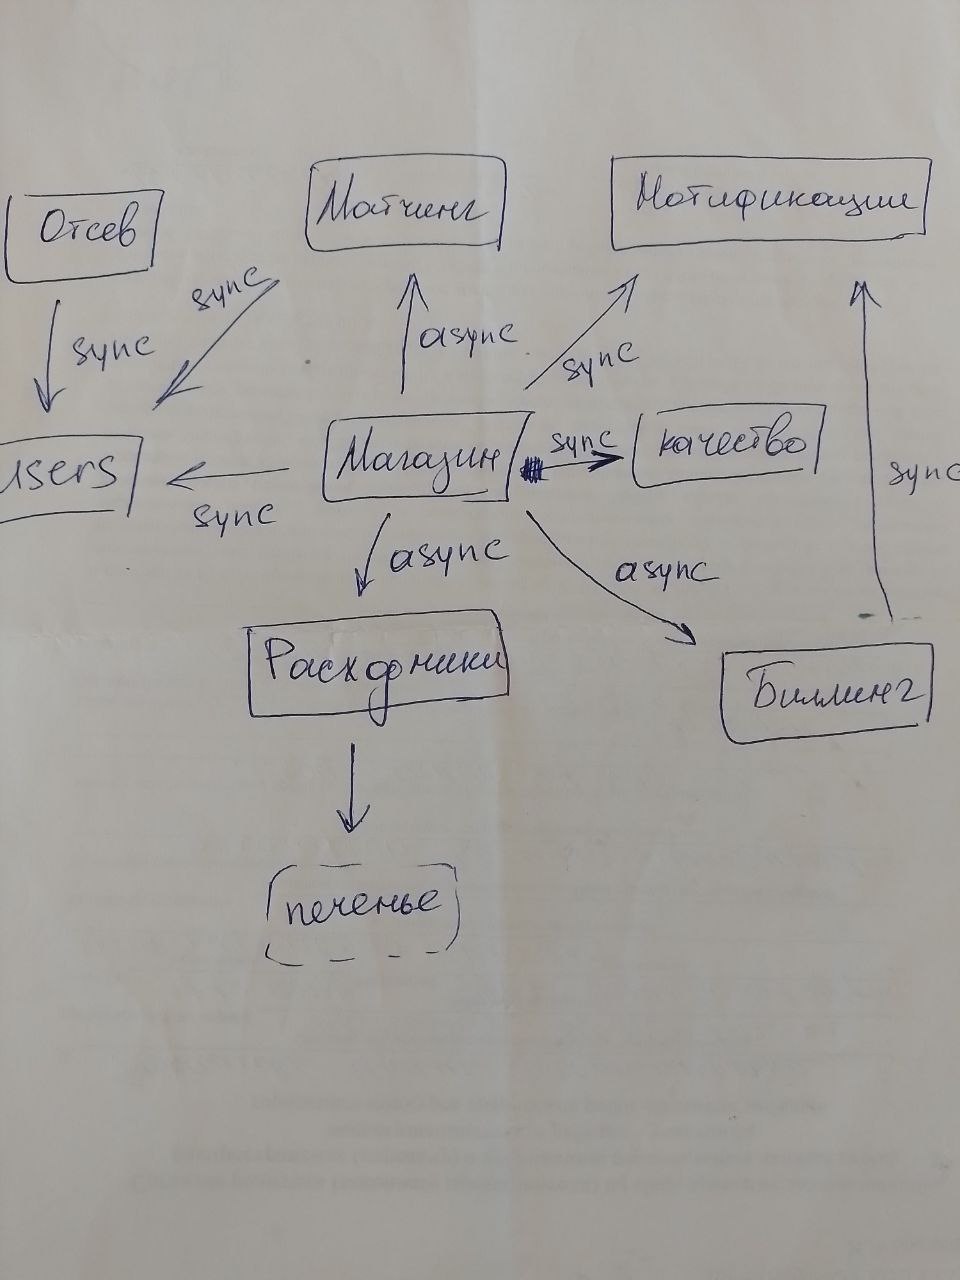 Отсев
Матчинг
Нотификации
sync
sync
async
sync
users
Магазин
sync
качество
sync
sync
async
async
Расходники
Биллинг
печенье